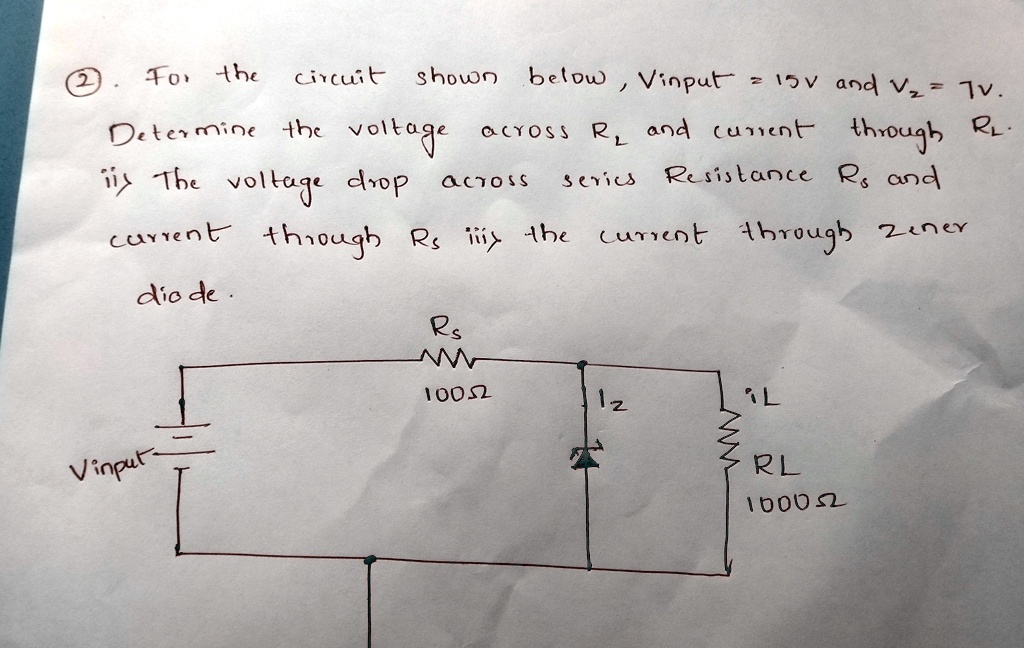 ②. For the circuit shown below, Vinput = 15V and Vz = 7V.
Determine the voltage across RL and current through RL.
ii) The voltage drop across series Resistance Rs and
current through Rs iii) the current through zener
diode.
Rs
100Ω
Iz
iL
Vinput
RL
1000Ω